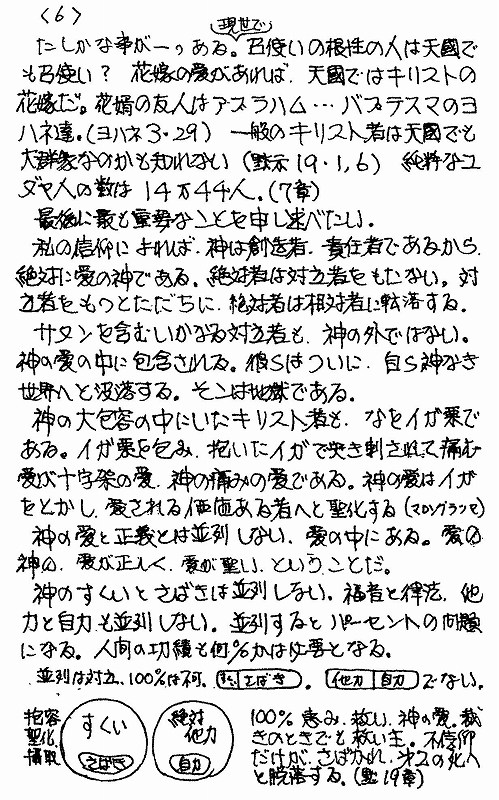 〈6〉
現世で
たしかな事が一つある。召使いの根性の人は天國で
も召使い？ 花嫁の愛があれば、天國ではキリストの
花嫁だ。花婿の友人はアブラハム…バプテスマのヨ
ハネ達。(ヨハネ3・29) 一般のキリスト者は天國でも
大群衆なのかも知れない (黙示19・1,6) 純粋なユ
ダヤ人の数は 14万44人。(7章)
最後に最も重要なことを申し述べたい。
私の信仰によれば、神は創造者、責任者であるから、
絶対に愛の神である。絶対者は対立者をもたない。対
立者をもつとただちに、絶対者は相対者に転落する。
サタンを含むいかなる対立者も、神の外ではない。
神の愛の中に包含される。彼らはついに、自ら神なき
世界へと没落する。そこは地獄である。
神の大包容の中にいたキリスト者も、なをイガ栗で
ある。イガ栗を包み、抱いたイガで突き刺されて痛む
愛が十字架の愛、神の痛みの愛である。神の愛はイガ
をとかし、愛される価値ある者へと聖化する(マロングランマ)
神の愛と正義とは並列しない、愛の中にある。愛の
神の、愛が正しく、愛が聖い、ということだ。
神のすくいとさばきは並列しない。福音と律法、他
力と自力も並列しない。並列するとパーセントの問題
になる。人間の功績も何%かは必要となる。
並列は対立、100%は不可。 さばき 。 他力 自力 でない。
抱容 聖化 摂取
すくい さばき
絶対他力 自力
100% 恵み、救い、神の愛。裁
きのときでも救い主。不信仰
だけが、さばかれ、才2の死へ
と脱落する。(黙19章)